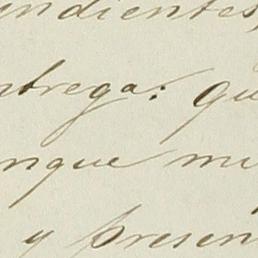 undientes,
ntrega: qu
nque mu
y presen